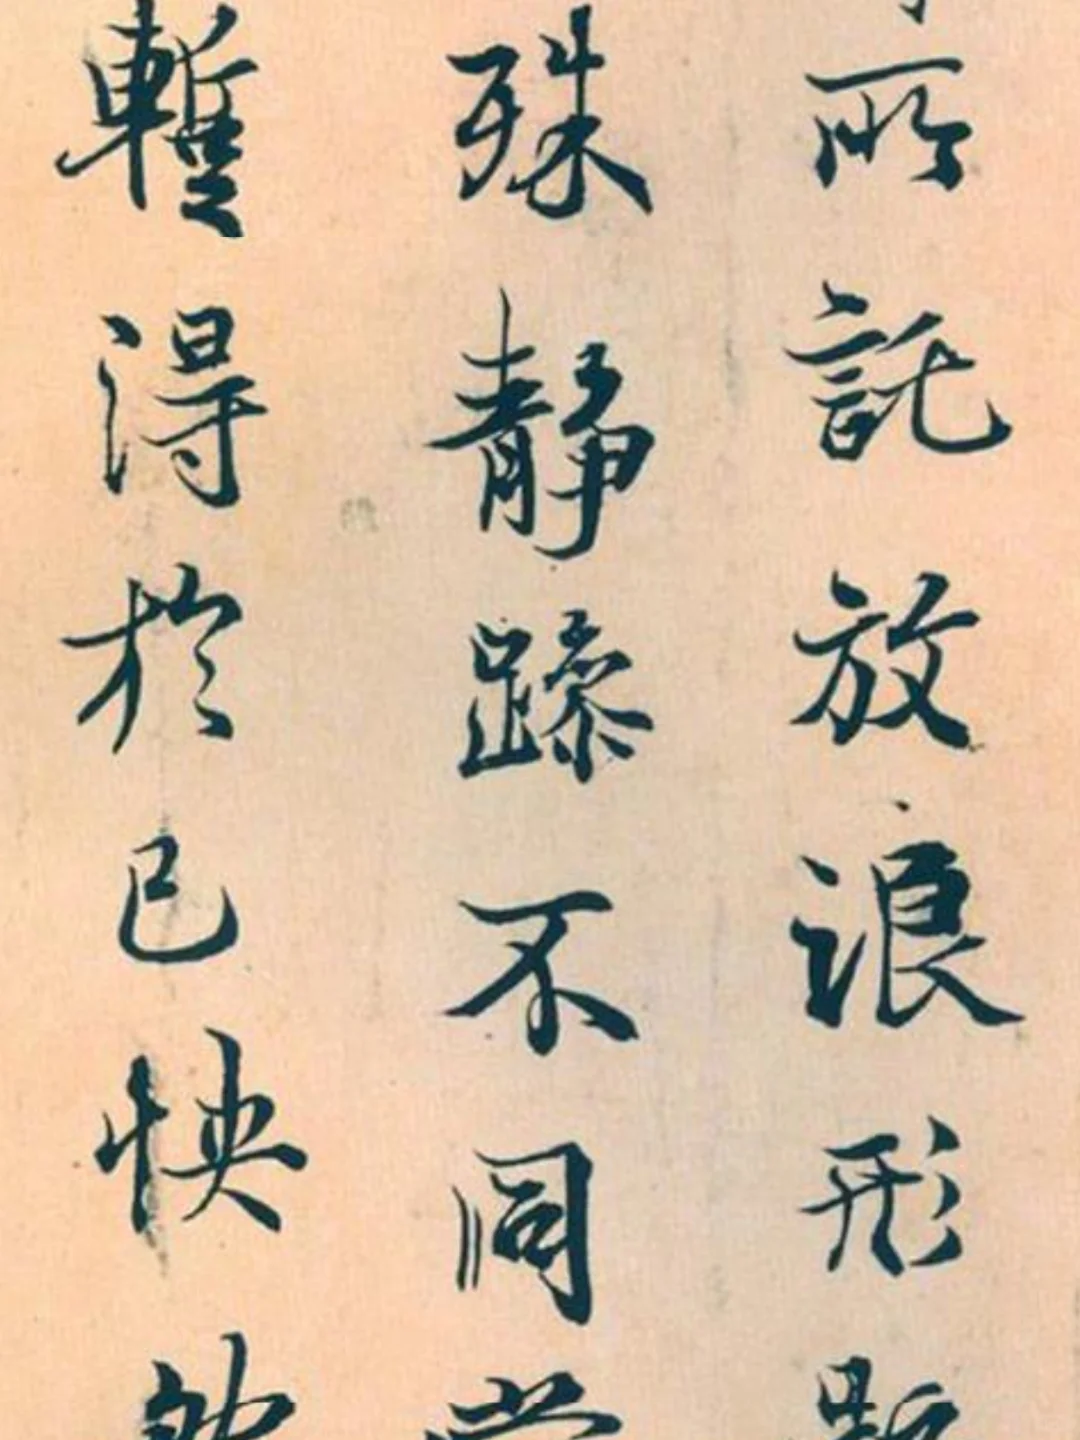 所託放浪形
殊靜躁不同
暫得於己怏